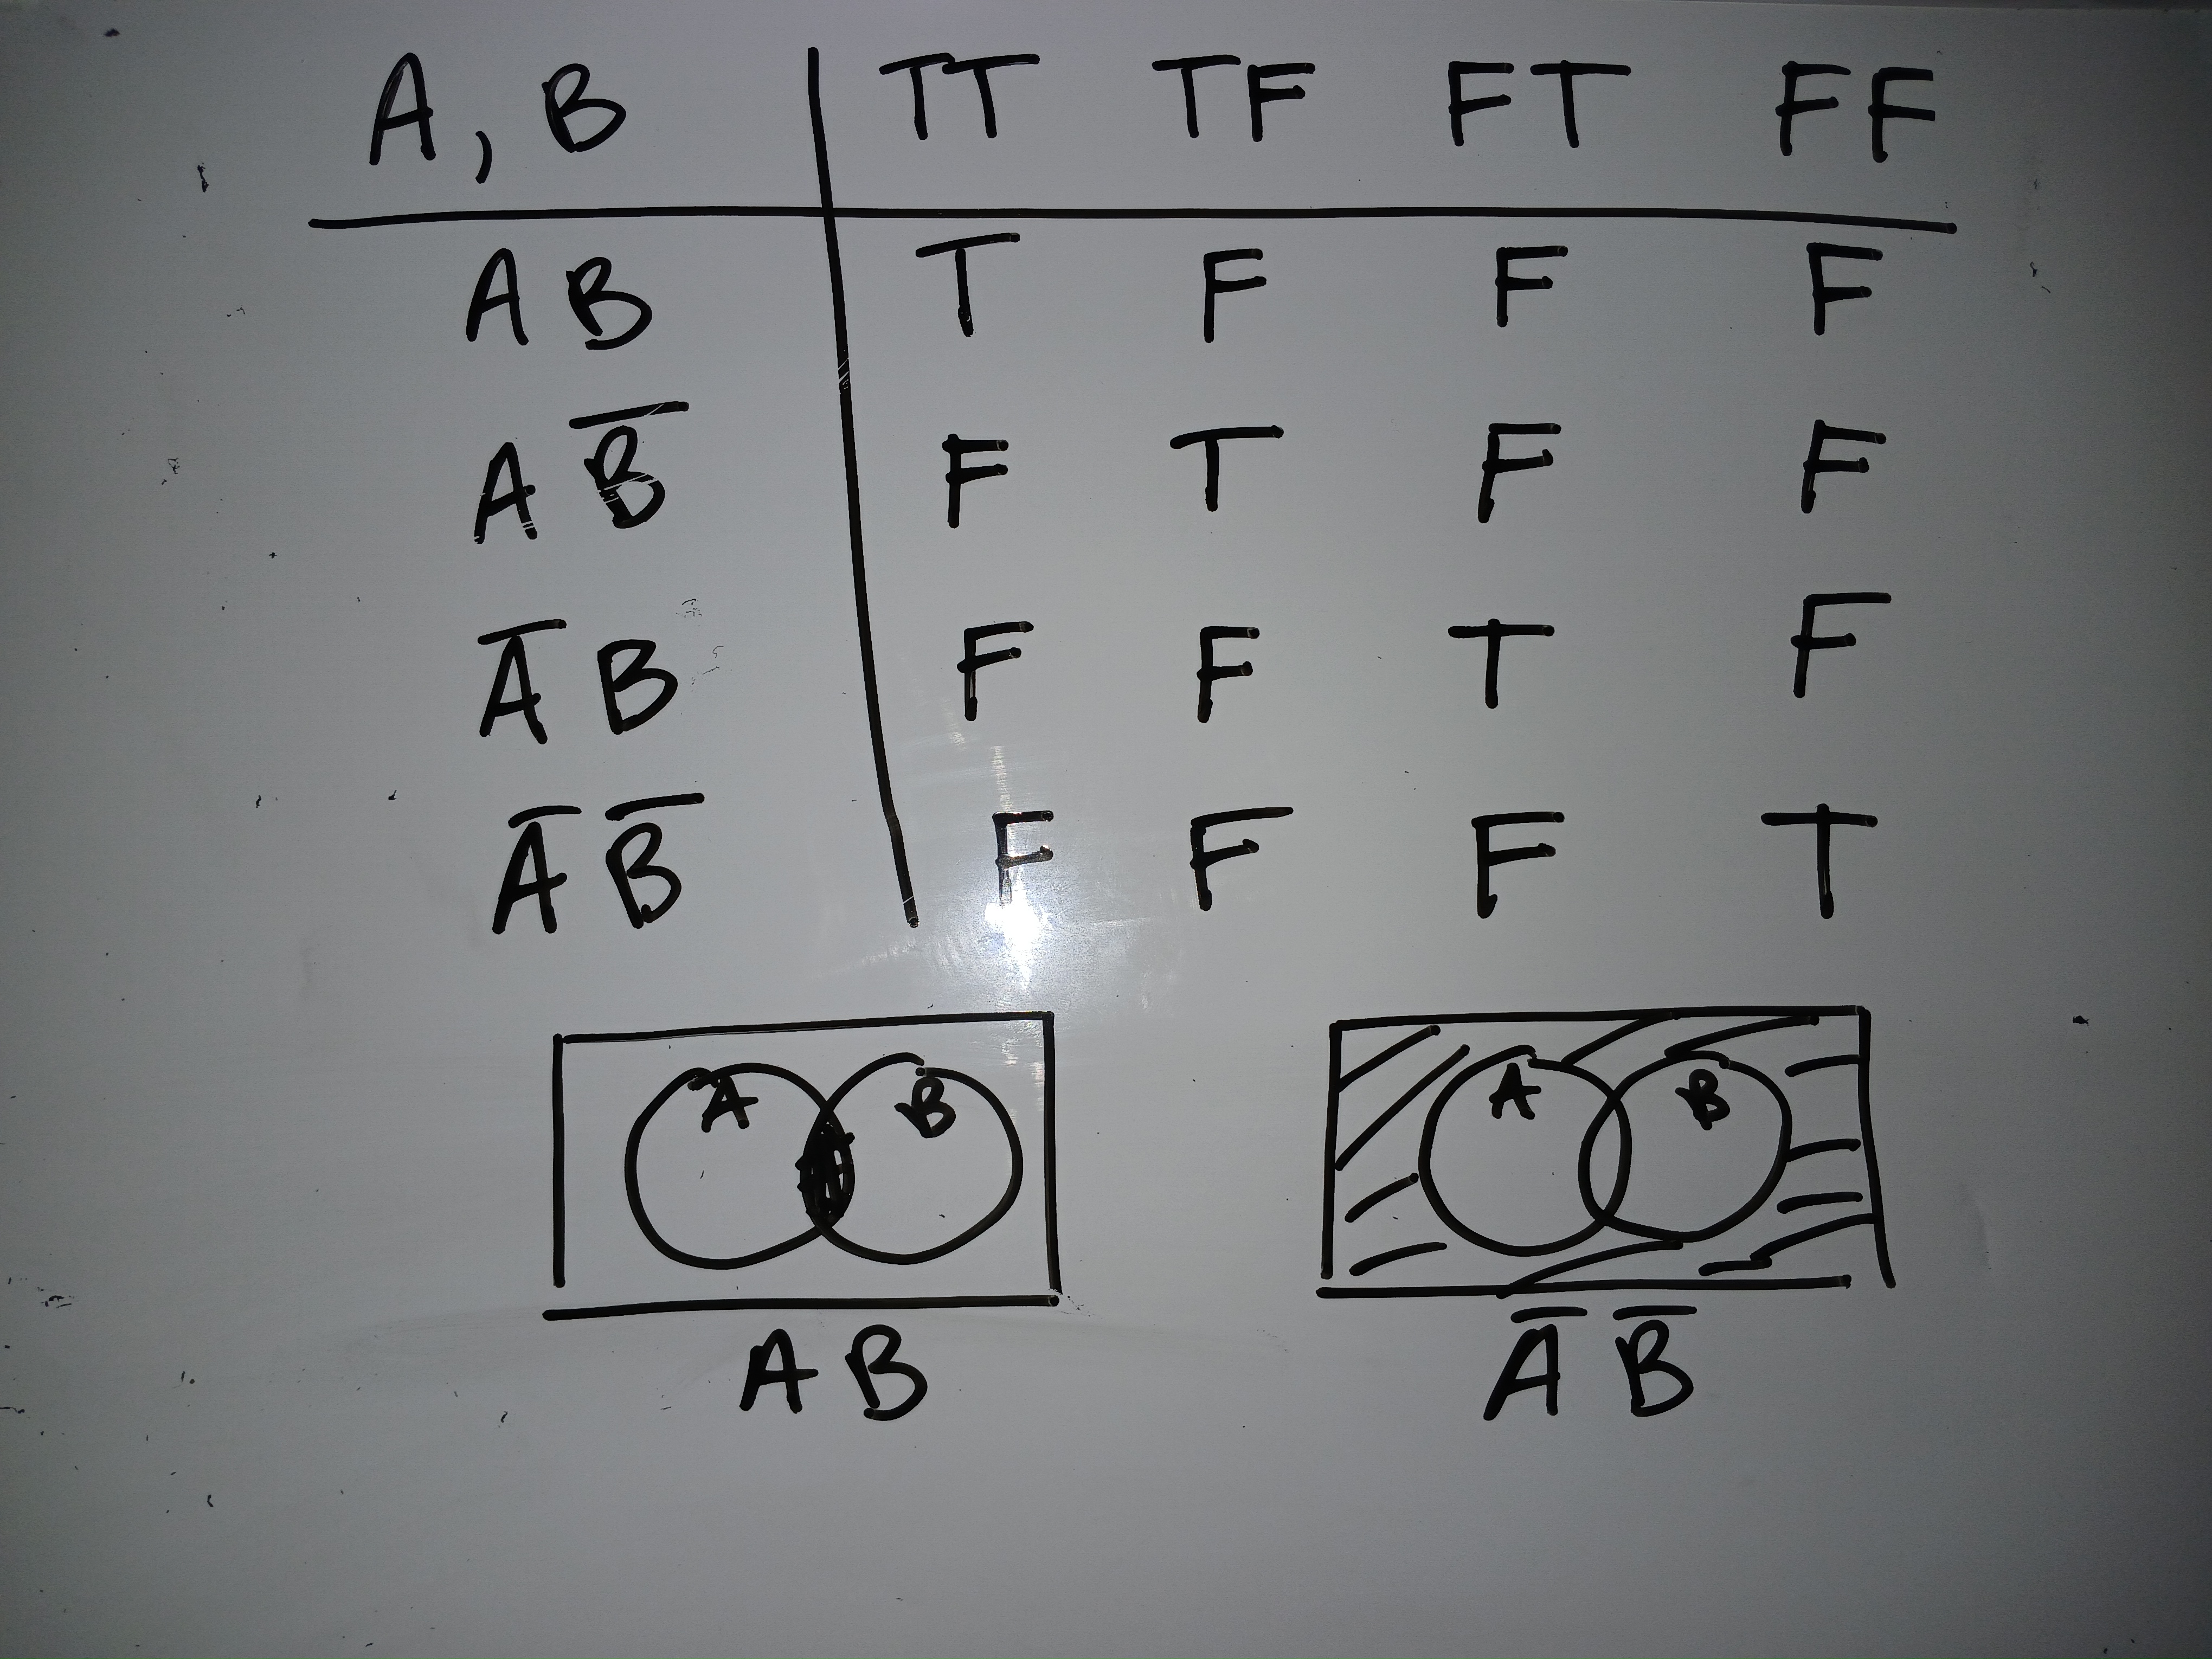 A, B TT TF FT FF
AB T F F F
AB̅ F T F F
A̅B F F T F
A̅ B̅ F F F T
A B A B
AB A̅ B̅